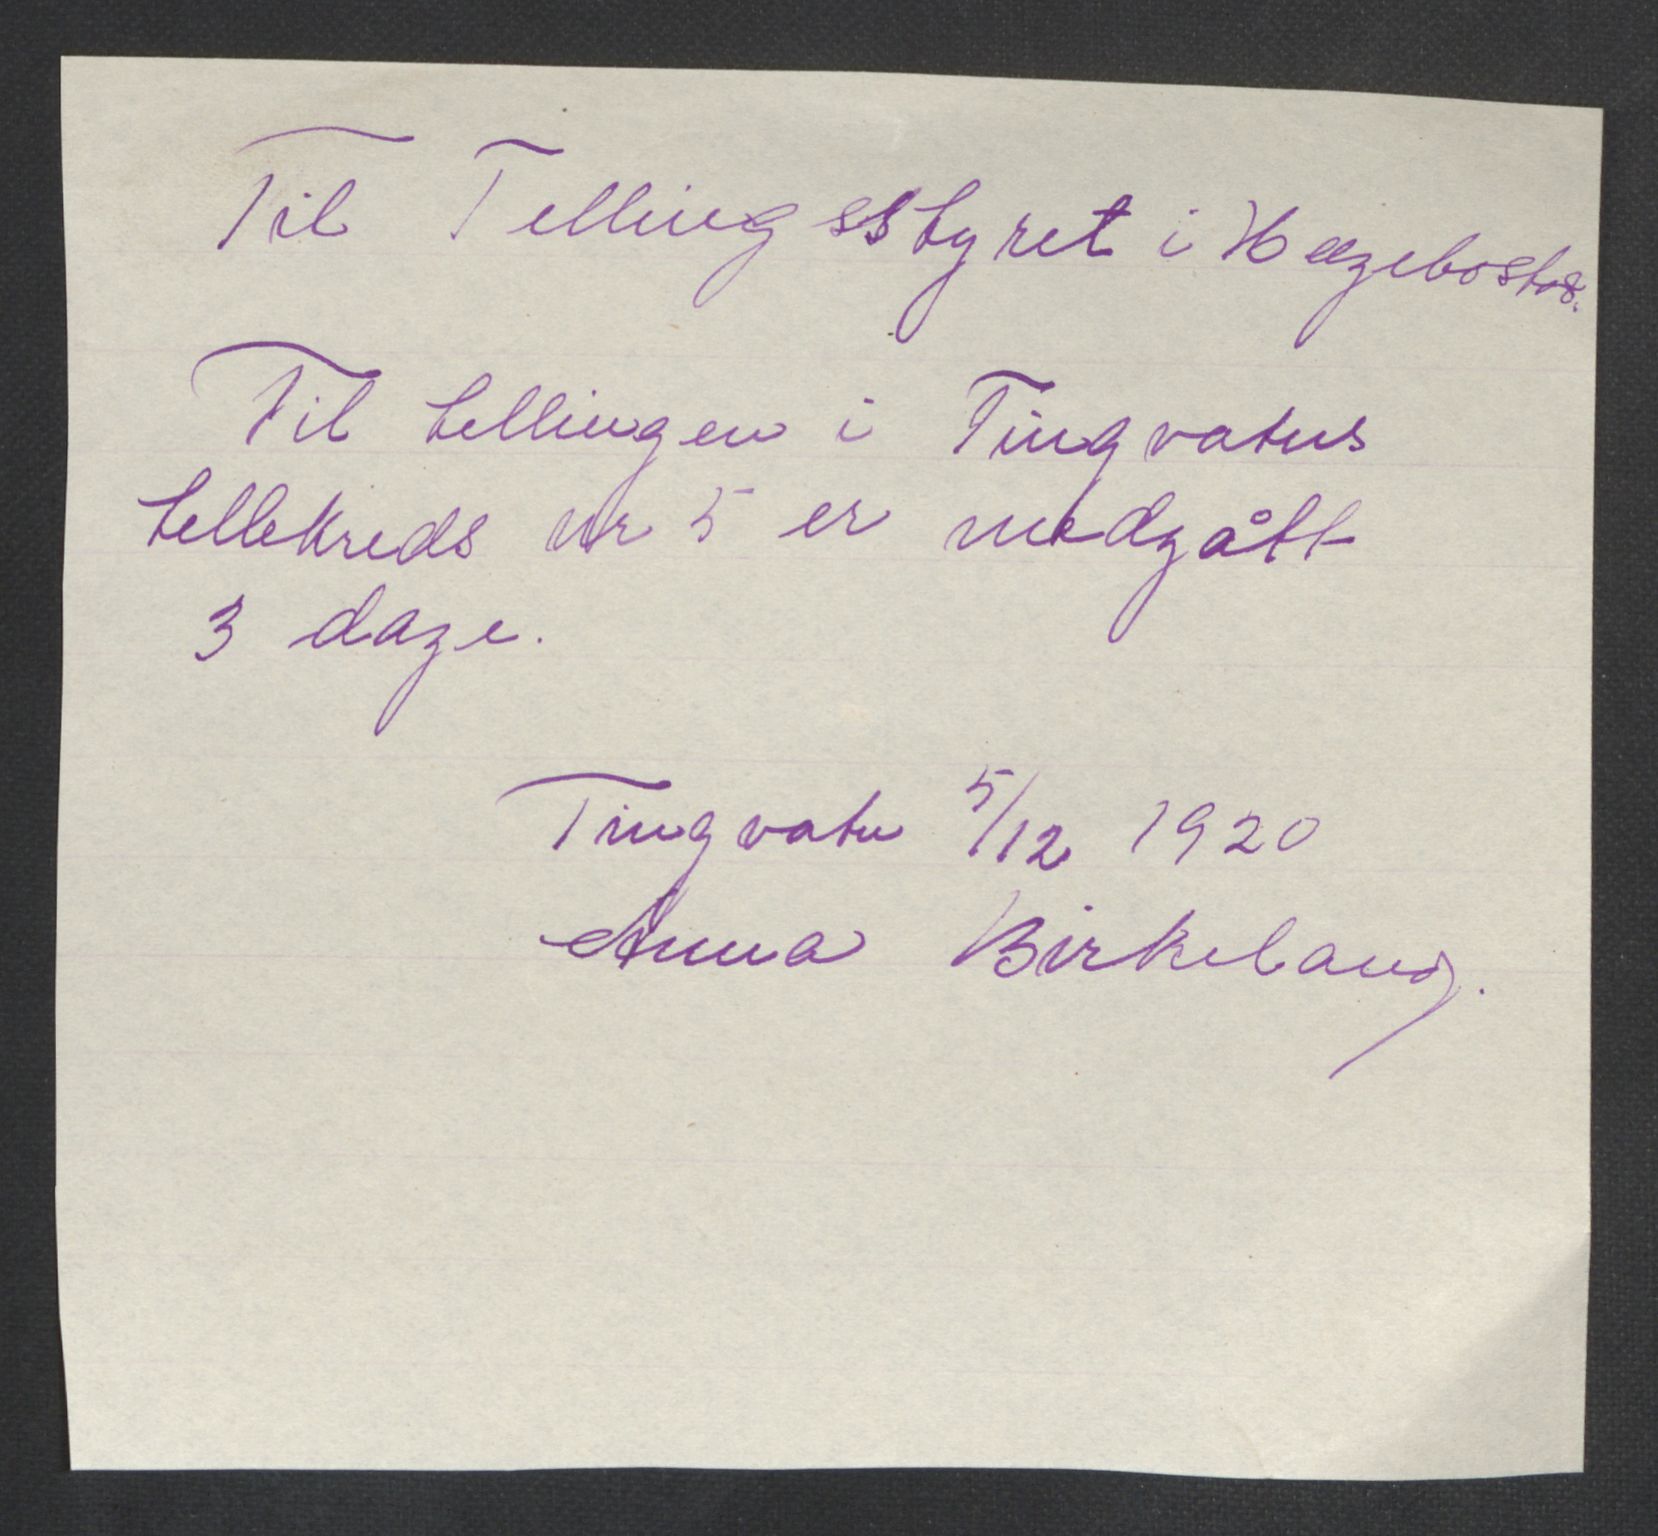 Til Tellingsstyret i Hægebostad.
Til tellingen i Tingvatns
tellekreds nr 5 er medgått
3 dage.
Tingvatn 5/12 1920
Anna Birkeland.